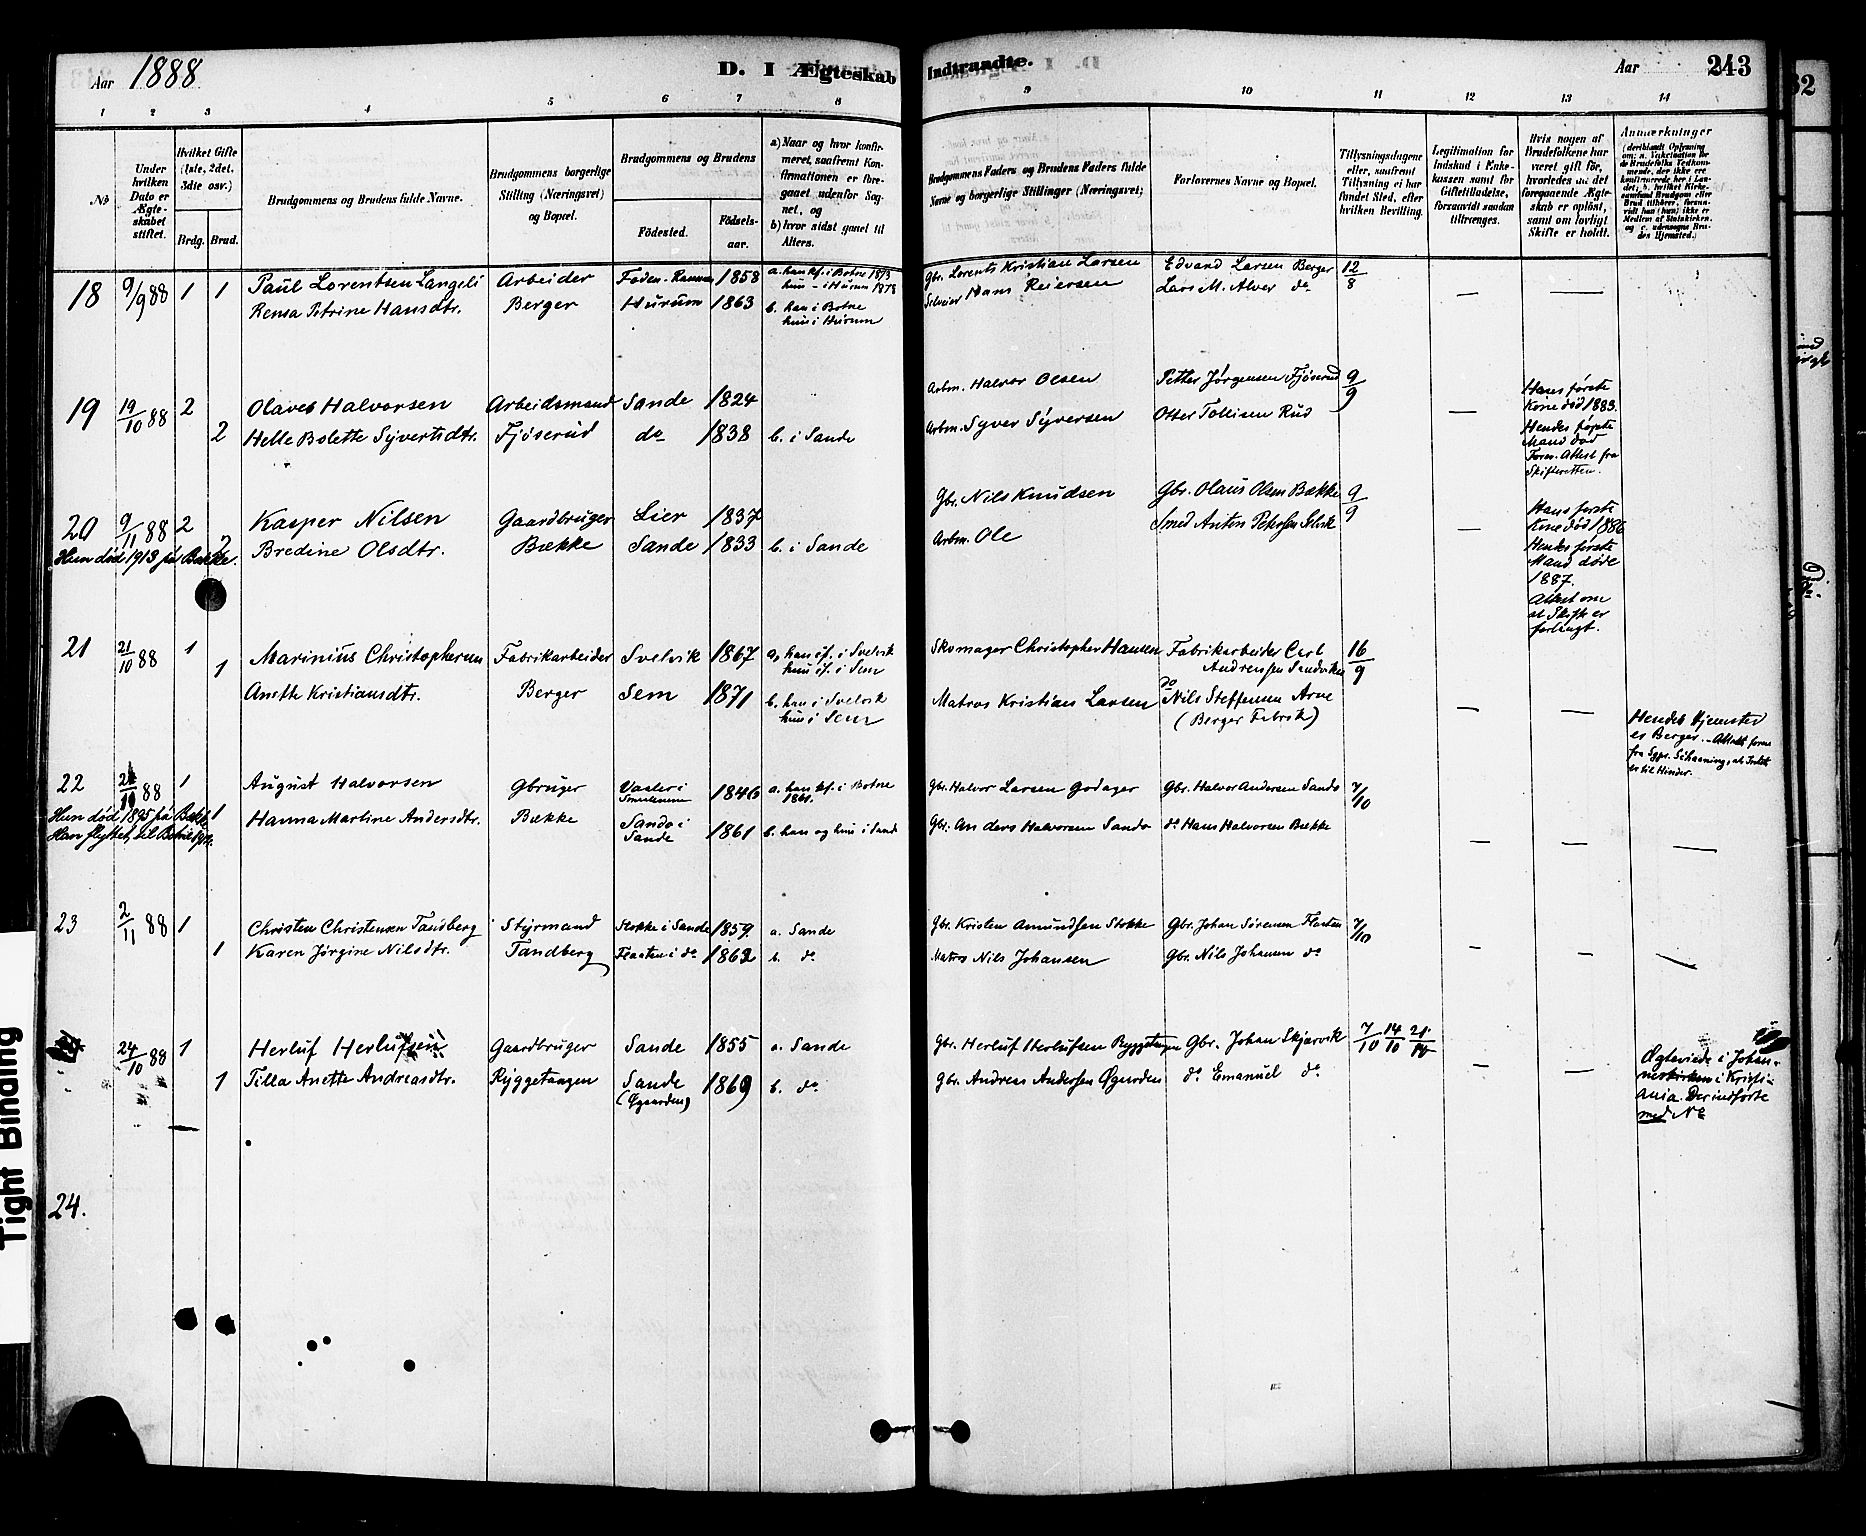 Aar 1888
D. I Ægteskab Indtraadte.
Aar 243
1 2 3 4 5 6 7 8 9 10 11 12 13 14
No
Under hvilken Dato er Ægteskabet stiftet.
Hvilket Gifte (1ste, 2det, 3die osv.)
Brdg. Brud.
Brudgommens og Brudens fulde Navne.
Brudgommens borgerlige Stilling (Næringsvei) og Bopæl.
Brudgommens og Brudens
Födested. Födsels-aar.
a) Naar og hvor konfirmeret, saafremt Konfirmationen er foregaaet udenfor Sognet, og
b) hvor sidst gaaet til Alters.
Brudgommens Faders og Brudens Faders fulde Navne og borgerlige Stillinger (Næringsvei);
Forlovernes Navne og Bopæl.
Tillysningsdagene eller, saafremt Tillysning ei har fundet Sted, efter hvilken Bevilling.
Legitimation for Indskud i Enkekassen samt for Giftetilladelse, forsaavidt saadan tiltrænges.
Hvis nogen af Brudefolkene har været gift för, hvorledes da det foregaaende Ægteskab er oplöst, samt om lovligt Skifte er holdt.
Anmærkninger
18 9/9 88 1 1 Paul Lorentsen Langeli Arbeider 1858 a. han kf. i Botne 1873 Gbr. Lorents Kristian Larsen Edvard Larsen Berger 12/8
hun - i Hurum 1878
Rensa Petrine Hansdtr. Berger Hurum 1863 b. han i Botne Selveier Hans Reiersen Lars M. Alver do
hun i Hurum
19 19/10 88 2 Olaves Halvorsen Arbeidsmand Sande 1824 Arbm. Halvor Olsen Petter Jørgensen Fjøserud 9/9 Hans første
Kone død 1883.
2 Helle Bolette Syvertsdtr. Fjøserud do 1838 b. i Sande Arbm. Syver Syversen Otter Tollisen Rud Hendes første
Mand død
Form. Attest fra
Skifteretten.
20 9/11 88 2 Kasper Nilsen Gaardbruger Lier 1837 Gbr. Nils Knudsen Gbr. Olaus Olsen Bække 9/9 Hans første
Kone død 1886
2 Bredine Olsdtr. Bække Sande 1833 b. i Sande Arbm. Ole Smed Anton Petersen Selvik Hendes første
Mand døde
1887.
Attest om
at Skifte er
forlangt.
Hun død 1913 på Bække.
21 21/10 88 1 Marinius Christophersen Fabrikarbeider Svelvik 1867 a, han kf. i Svelvik Skomager Christopher Hansen Fabrikarbeider Carl 16/9
hun kf. i Sem Andreasen Sandviken
1 Anette Kristiansdtr. Berger Sem 1871 b. han i Svelvik Matros Kristian Larsen do Nils Steffensen Arve
hun i Sem (Berger Fabrik)
Hendes Hjemsted
er Berger.
er til Hinder.
22 88 1 August Halvorsen Gbruger Vaaler i 1846 a. han kf. i Botne Gbr. Halvor Larsen Godager Gbr. Halvor Andersen Sando 7/10
1861.
1 Hanna Martine Andersdtr. Bække Sando i Sande 1861 b. han og hun i Sande Gbr. Anders Halvorsen Sando do Hans Halvorsen Bække
Hun død 1895 på Bække
Han flyttet til Botne
23 2/11 88 1 Christen Christensen Tandberg Styrmand Stokke i Sande 1859. a. Sande Gbr. Kristen Amundsen Stokke Gbr. Johan Sørensen Flaaten 7/10
1 Karen Jørgine Nilsdtr. Tandberg Flaaten i do 1862 b. do Matros Nils Johansen Gbr. Nils Johansen do
24/10 88 1 Herluf Herlufsen Gaardbruger Sande 1855 a. Sande Gbr. Herluf Herlufsen Ryggetangen Gbr. Johan Skjærvik 7/10 14/10 21/10
1 Tilla Anette Andreasdtr. Ryggetangen Sande 1869 b. do Gbr. Andreas Andersen Øgaarden do Emanuel do
(Øgaarden)
Ægteviede i Johanneskirken i Kristiania. Der indførte
med No
24.
Tight Binding